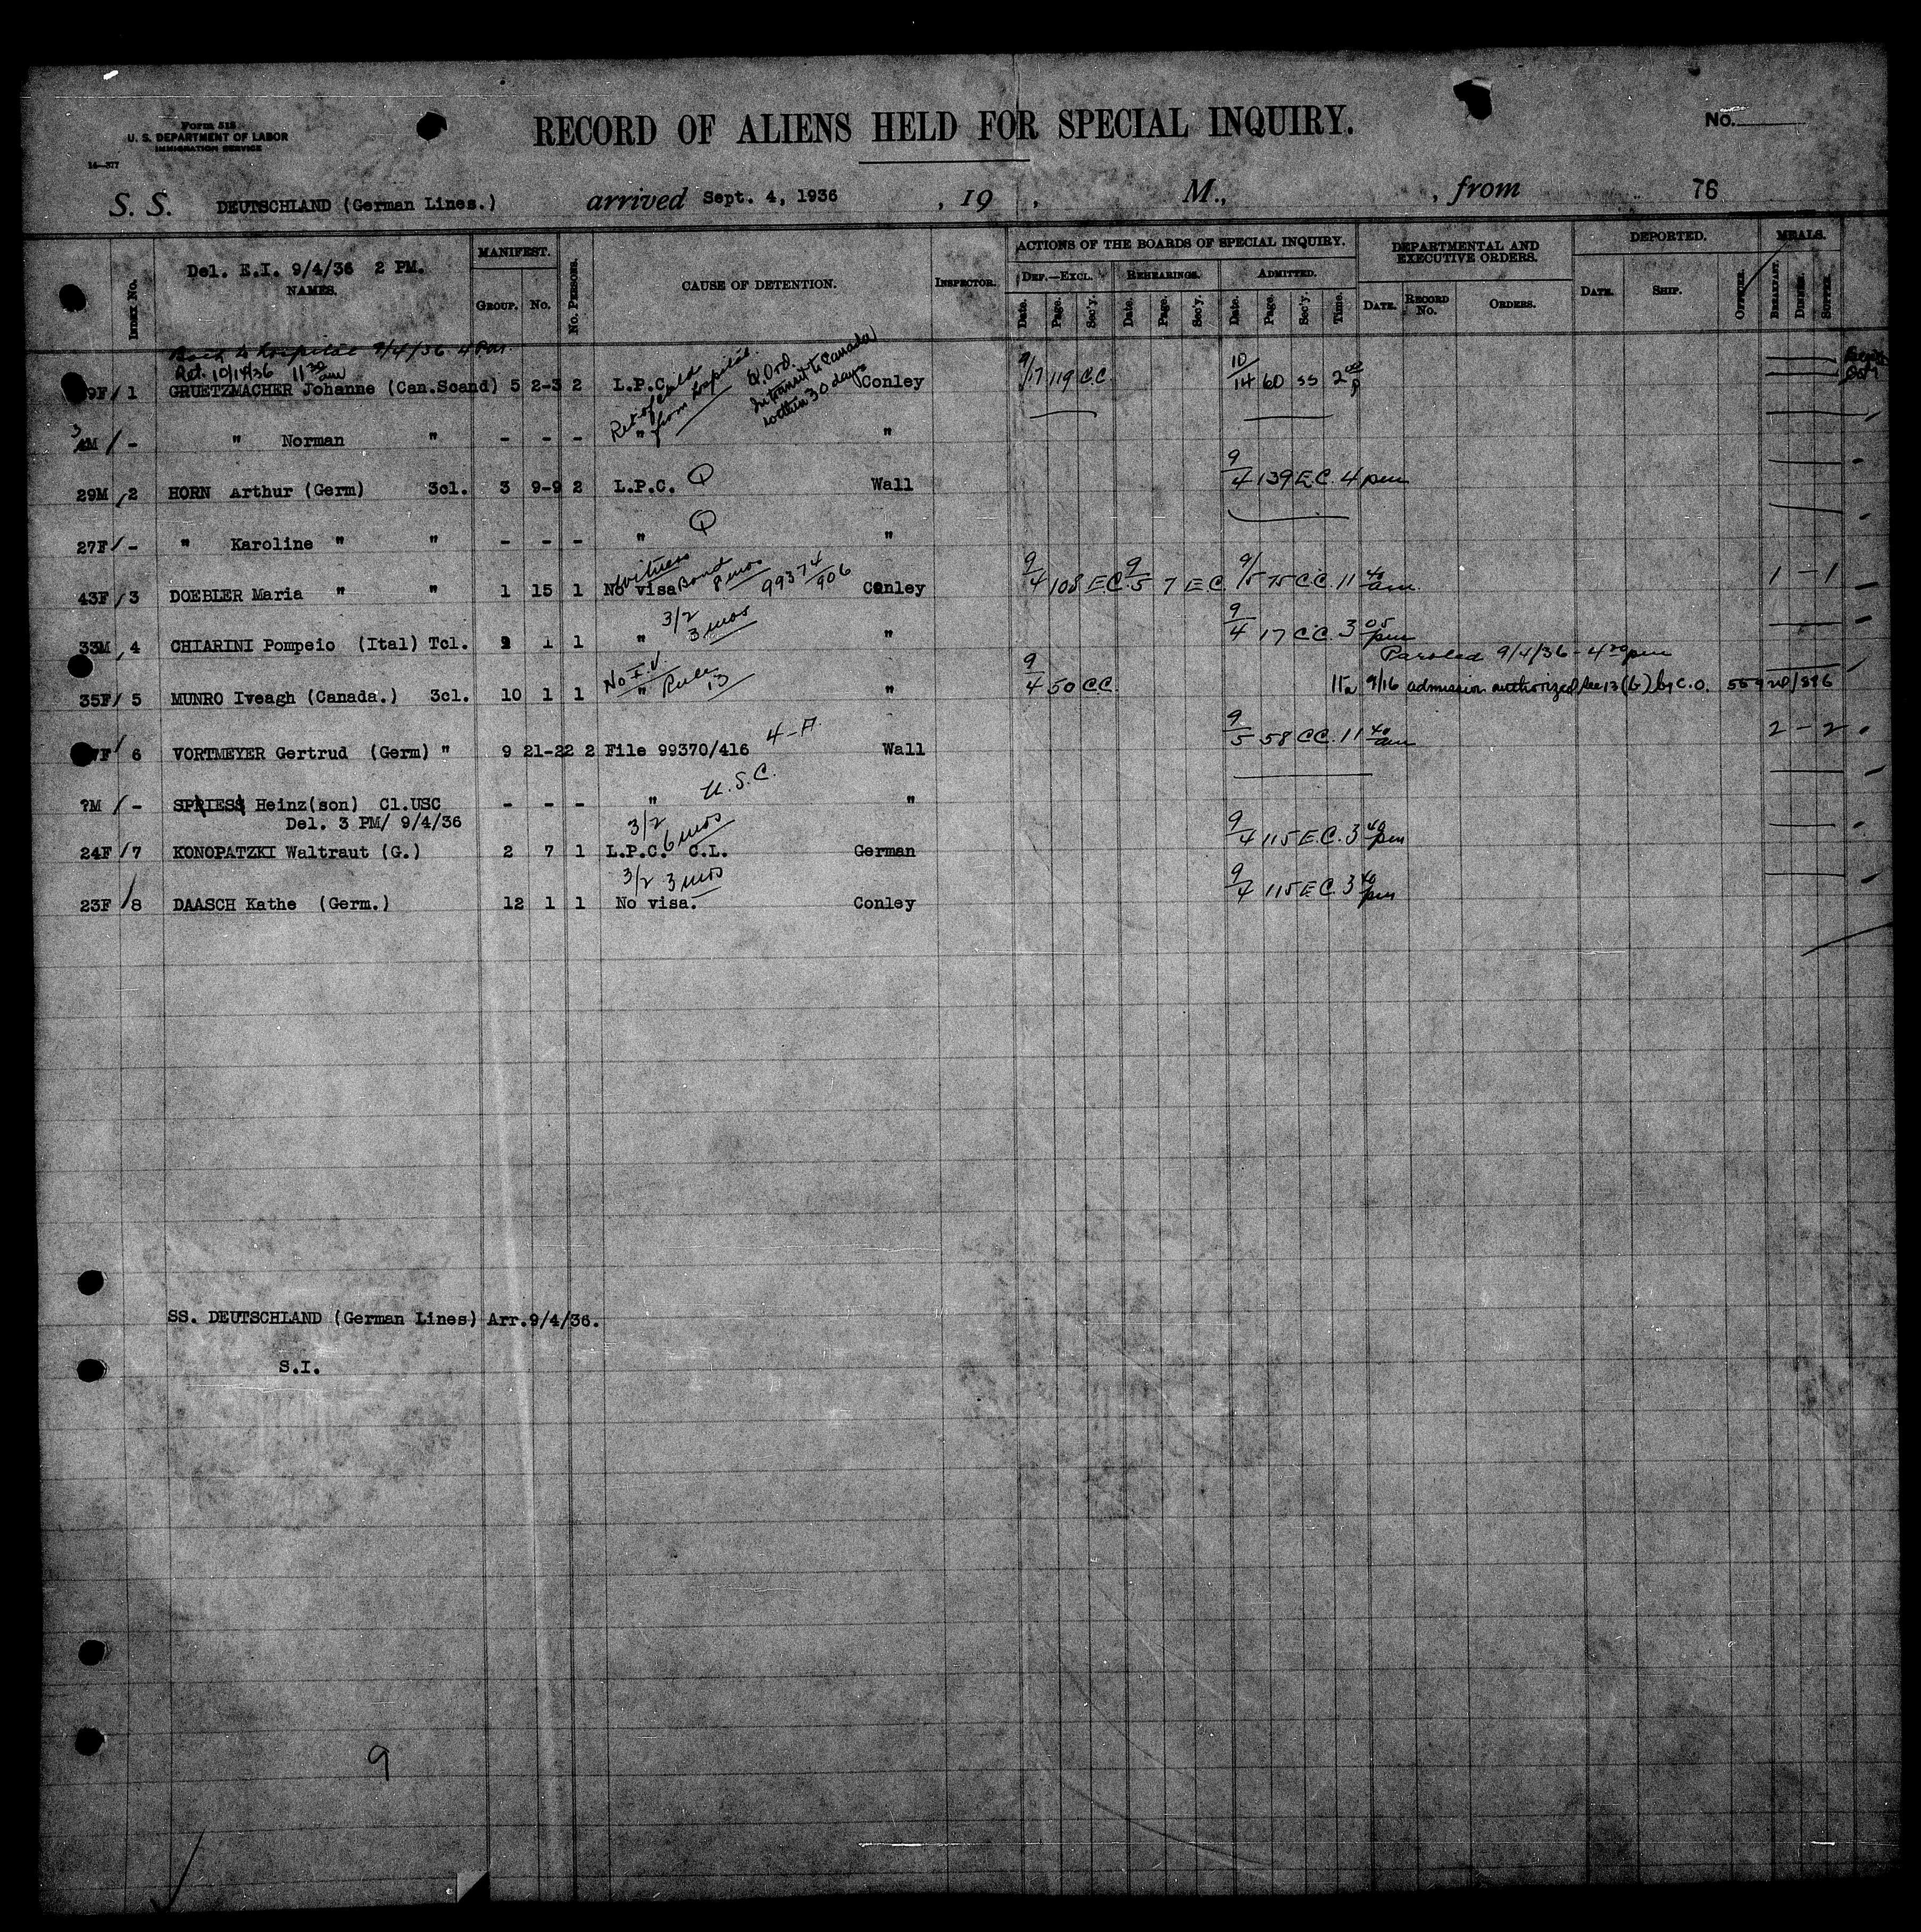 Form 518
U. S. DEPARTMENT OF LABOR
IMMIGRATION SERVICE
14—377
RECORD OF ALIENS HELD FOR SPECIAL INQUIRY.
No.
S. S. DEUTSCHLAND (German Lines.) arrived Sept. 4, 1936 , 19 , M., , from 76
Del. E.I. 9/4/36 2 PM.
INDEX No. NAMES. MANIFEST. GROUP. No. No. PERSONS. CAUSE OF DETENTION. INSPECTOR. ACTIONS OF THE BOARDS OF SPECIAL INQUIRY. DEPARTMENTAL AND EXECUTIVE ORDERS. DEPORTED. MEALS.
DEF.—EXCL. REHEARINGS. ADMITTED.
Date. Page. Sec'y. Date. Page. Sec'y. Date. Page. Sec'y. Time. DATE. RECORD No. ORDERS. DATE. SHIP. OFFICER. BREAKFAST. DINNER. SUPPER.
Back to hospital 9/4/36 4 Pm.
Ret. 10/14/36 11 30 am
9F/ 1 GRUETZMACHER Johanne (Can.Scand) 5 2-3 2 L.P.C. Conley 9/17 119 C.C. 10/14 60 SS 2 00 P
Ret of child from hospital.
Q.Ord. In transit to Canada within 30 days
3 M/ - " Norman " - - - " "
29M / 2 HORN Arthur (Germ) 3cl. 3 9-9 2 L.P.C. Q Wall 9/4 139 E.C. 4 pm
27F/ - " Karoline " " - - - " Q "
43F/ 3 DOEBLER Maria " " 1 15 1 No visa Conley 9/4 108 E.C. 9/5 7 E.C. 9/5 75 C.C. 11 40 am. 1 - 1
witness Bond 8 mos 99374/906
33M / 4 CHIARINI Pompeio (Ital) Tcl. 1 1 " 3/2 3 mos " 9/4 17 C.C. 3 05 pm
Paroled 9/4/36 - 4 30 pm
35F/ 5 MUNRO Iveagh (Canada.) 3cl. 10 1 1 " No I.V. Rule 13 " 9/4 50 C.C. 11a 9/16 admission authorized Sec 13 (b) by C.O.
7F/ 6 VORTMEYER Gertrud (Germ) " 9 21-22 2 File 99370/416 4-A Wall 9/5 58 C.C. 11 40 am 2 - 2
?M / - SPRIESS Heinz(son) Cl.USC - - - " U.S.C. "
Del. 3 PM/ 9/4/36
24F /7 KONOPATZKI Waltraut (G.) 2 7 1 L.P.C. C.L. 3/2 6 mos German 9/4 115 E.C. 3 40 pm
23F /8 DAASCH Kathe (Germ.) 12 1 1 No visa. 3/2 3 mos Conley 9/4 115 E.C. 3 40 pm
SS. DEUTSCHLAND (German Lines) Arr.9/4/36.
S.I.
9